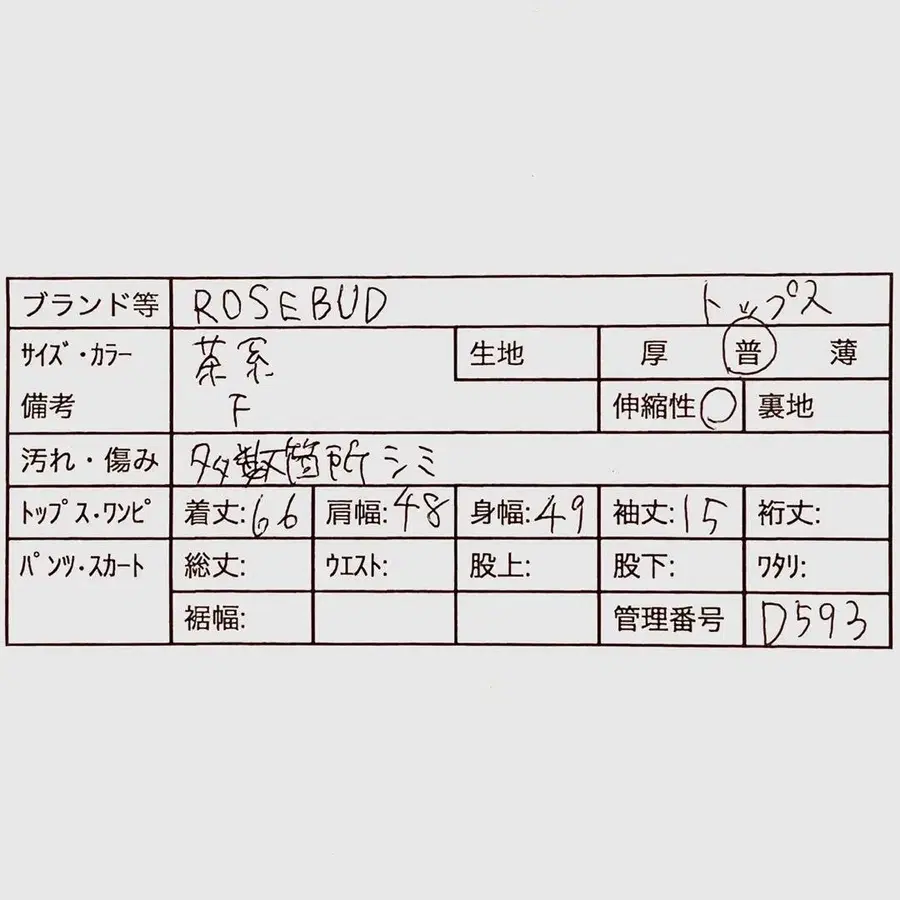 ブランド等 ROSEBUD トップス
サイズ・カラー 茶系 生地 厚 普 薄
備考 F 伸縮性 ○ 裏地
汚れ・傷み 多数箇所シミ
トップス・ワンピ 着丈:66 肩幅:48 身幅:49 袖丈:15 裄丈:
パンツ・スカート 総丈: ウエスト: 股上: 股下: ワタリ:
裾幅: 管理番号 D593